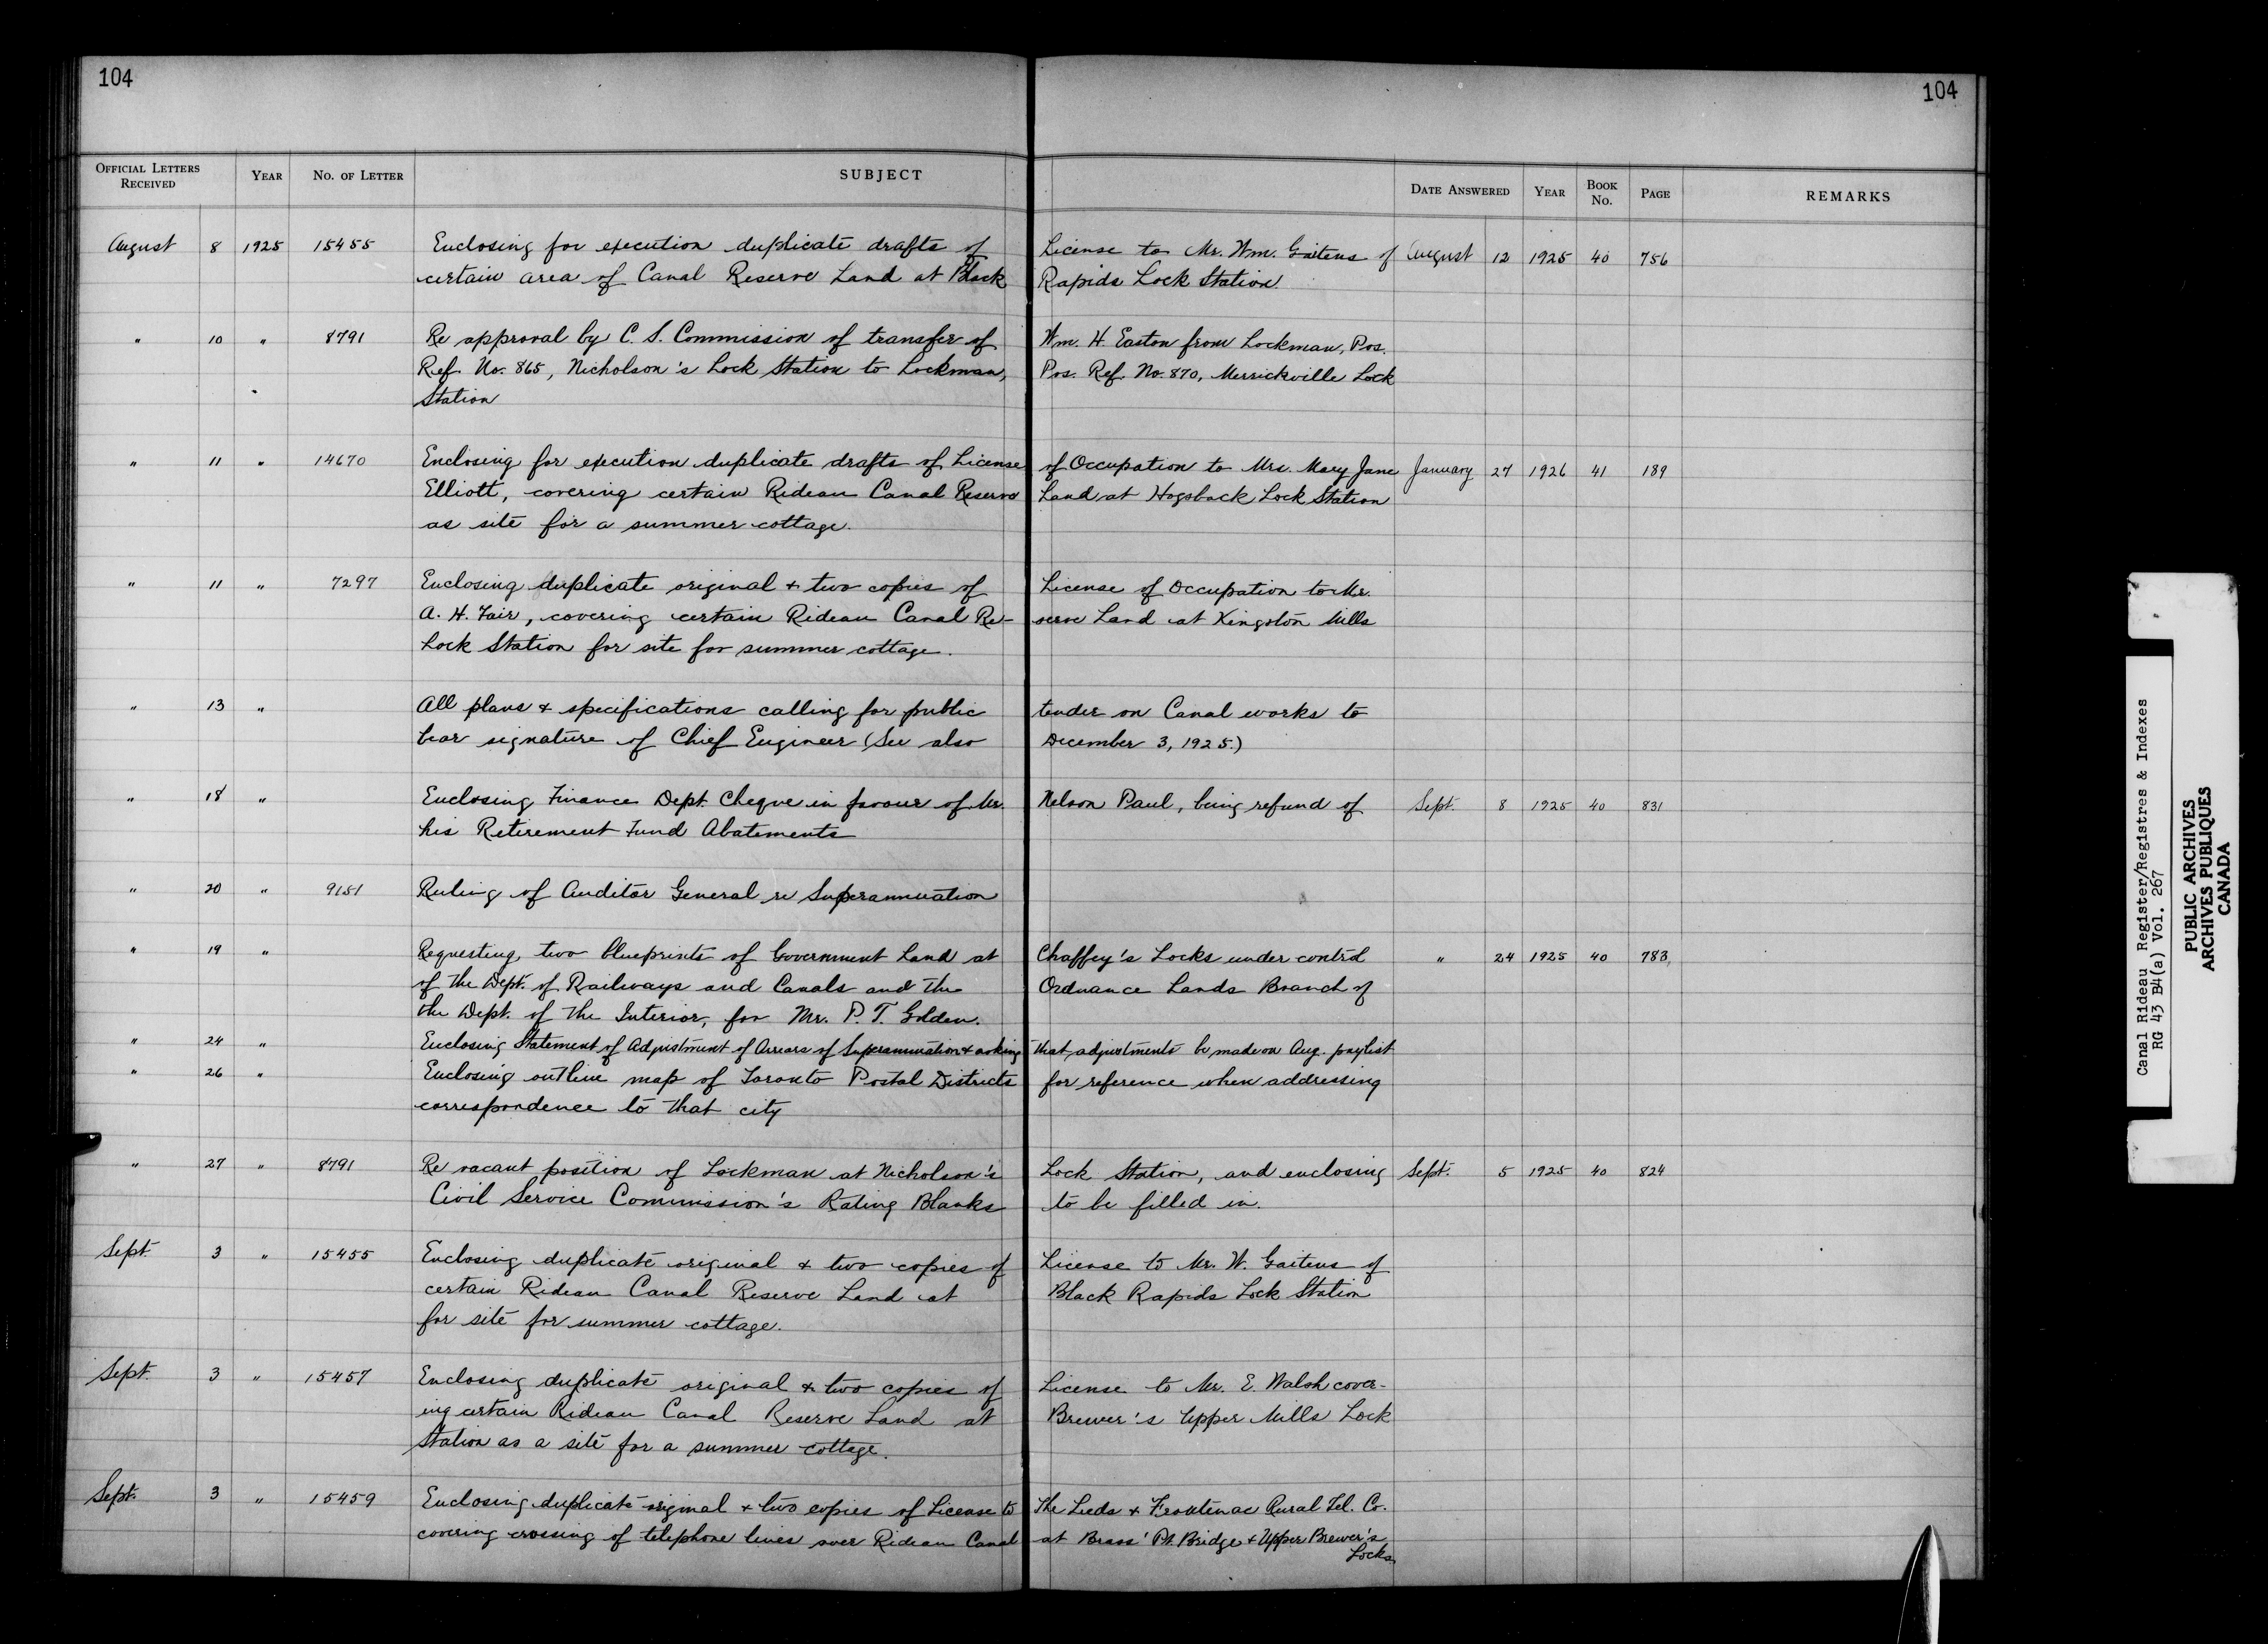 104
104
OFFICIAL LETTERS RECEIVED YEAR NO. OF LETTER SUBJECT DATE ANSWERED YEAR BOOK No. PAGE REMARKS
August 8 1925 15455 Enclosing for execution duplicate drafts of License to Mr. Wm. Gaitens of August 12 1925 40 756
certain area of Canal Reserve Land at Black Rapids Lock Station.
" 10 " 8791 Re approval by C. S. Commission of transfer of Wm. H. Easton from Lockman, Pos.
Ref. No. 865, Nicholson's Lock Station to Lockman, Pos. Ref. No. 870, Merrickville Lock
Station
" 11 " 14670 Enclosing for execution duplicate drafts of License of Occupation to Mrs. Mary Jane January 27 1926 41 189
Elliott, covering certain Rideau Canal Reserve Land at Hogsback Lock Station
as site for a summer cottage.
" 11 " 7297 Enclosing duplicate original & two copies of License of Occupation to Mr.
A. H. Fair, covering certain Rideau Canal Re- serve Land at Kingston Mills
Lock Station for site for summer cottage.
" 13 " All plans & specifications calling for public tender on Canal works to
bear signature of Chief Engineer (See also December 3, 1925.)
" 18 " Enclosing Finance Dept. Cheque in favour of Mr. Nelson Paul, being refund of Sept. 8 1925 40 831
his Retirement Fund Abatements
" 20 " 9151 Ruling of Auditor General re Superannuation
" 19 " Requesting two blueprints of Government Land at Chaffey's Locks under control " 24 1925 40 783
of the Dept. of Railways and Canals and the Ordnance Lands Branch of
the Dept. of the Interior, for Mr. P. T. Golden.
" 24 " Enclosing Statement of Adjustment of Arrears of Superannuation & asking that adjustments be made on Aug. paylist
" 26 " Enclosing outline map of Toronto Postal Districts for reference when addressing
correspondence to that city
" 27 " 8791 Re vacant position of Lockman at Nicholson's Lock Station, and enclosing Sept. 5 1925 40 824
Civil Service Commission's Rating Blanks to be filled in.
Sept. 3 " 15455 Enclosing duplicate original & two copies of License to Mr. W. Gaitens of
certain Rideau Canal Reserve Land at Black Rapids Lock Station
for site for summer cottage.
Sept. 3 " 15457 Enclosing duplicate original & two copies of License to Mr. E. Walsh cover-
ing certain Rideau Canal Reserve Land at Brewer's Upper Mills Lock
Station as a site for a summer cottage.
Sept. 3 " 15459 Enclosing duplicate original & two copies of License to The Leeds & Frontenac Rural Tel. Co.
covering crossing of telephone lines over Rideau Canal at Brass' Pt. Bridge & Upper Brewer's
Locks
Canal Rideau Register/Registres & Indexes
RG 43 B4(a) Vol. 267
PUBLIC ARCHIVES
ARCHIVES PUBLIQUES
CANADA